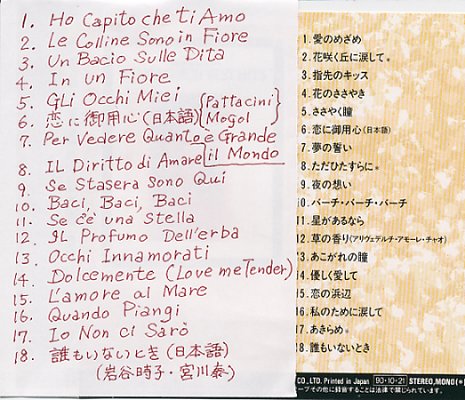 1. Ho Capito che ti Amo
2. Le Colline Sono in Fiore
3. Un Bacio Sulle Dita
4. In un Fiore
5. GLi Occhi Miei
6. 恋に御用心 (日本語) {Pattacini Mogol}
7. Per Vedere Quanto è Grande il Mondo
8. IL Diritto di Amare
9. Se Stasera Sono Qui
10. Baci, Baci, Baci
11. Se c'è una Stella
12. IL Profumo Dell'erba
13. Occhi Innamorati
14. Dolcemente (Love me Tender)
15. L'amore al Mare
16. Quando Piangi
17. Io Non ci Sarò
18. 誰もいないとき (日本語)
(岩谷時子・宮川泰)
1. 愛のめざめ
2. 花咲く丘に涙して。
3. 指先のキッス
4. 花のささやき
5. ささやく瞳
6. 恋に御用心(日本語)
7. 夢の誓い
8. ただひたすらに。
9. 夜の想い
10. バーチ・バーチ・バーチ
11. 星があるなら
12. 草の香り(アリヴェデルチ・アモーレ・チャオ)
13. あこがれの瞳
14. 優しく愛して
15. 恋の浜辺
16. 私のために涙して
17. あきらめ。
18. 誰もいないとき
CO., LTD. Printed in Japan 90・10・21 STEREO, MONO(*)
ープその他に録音することは法律で禁じられています。